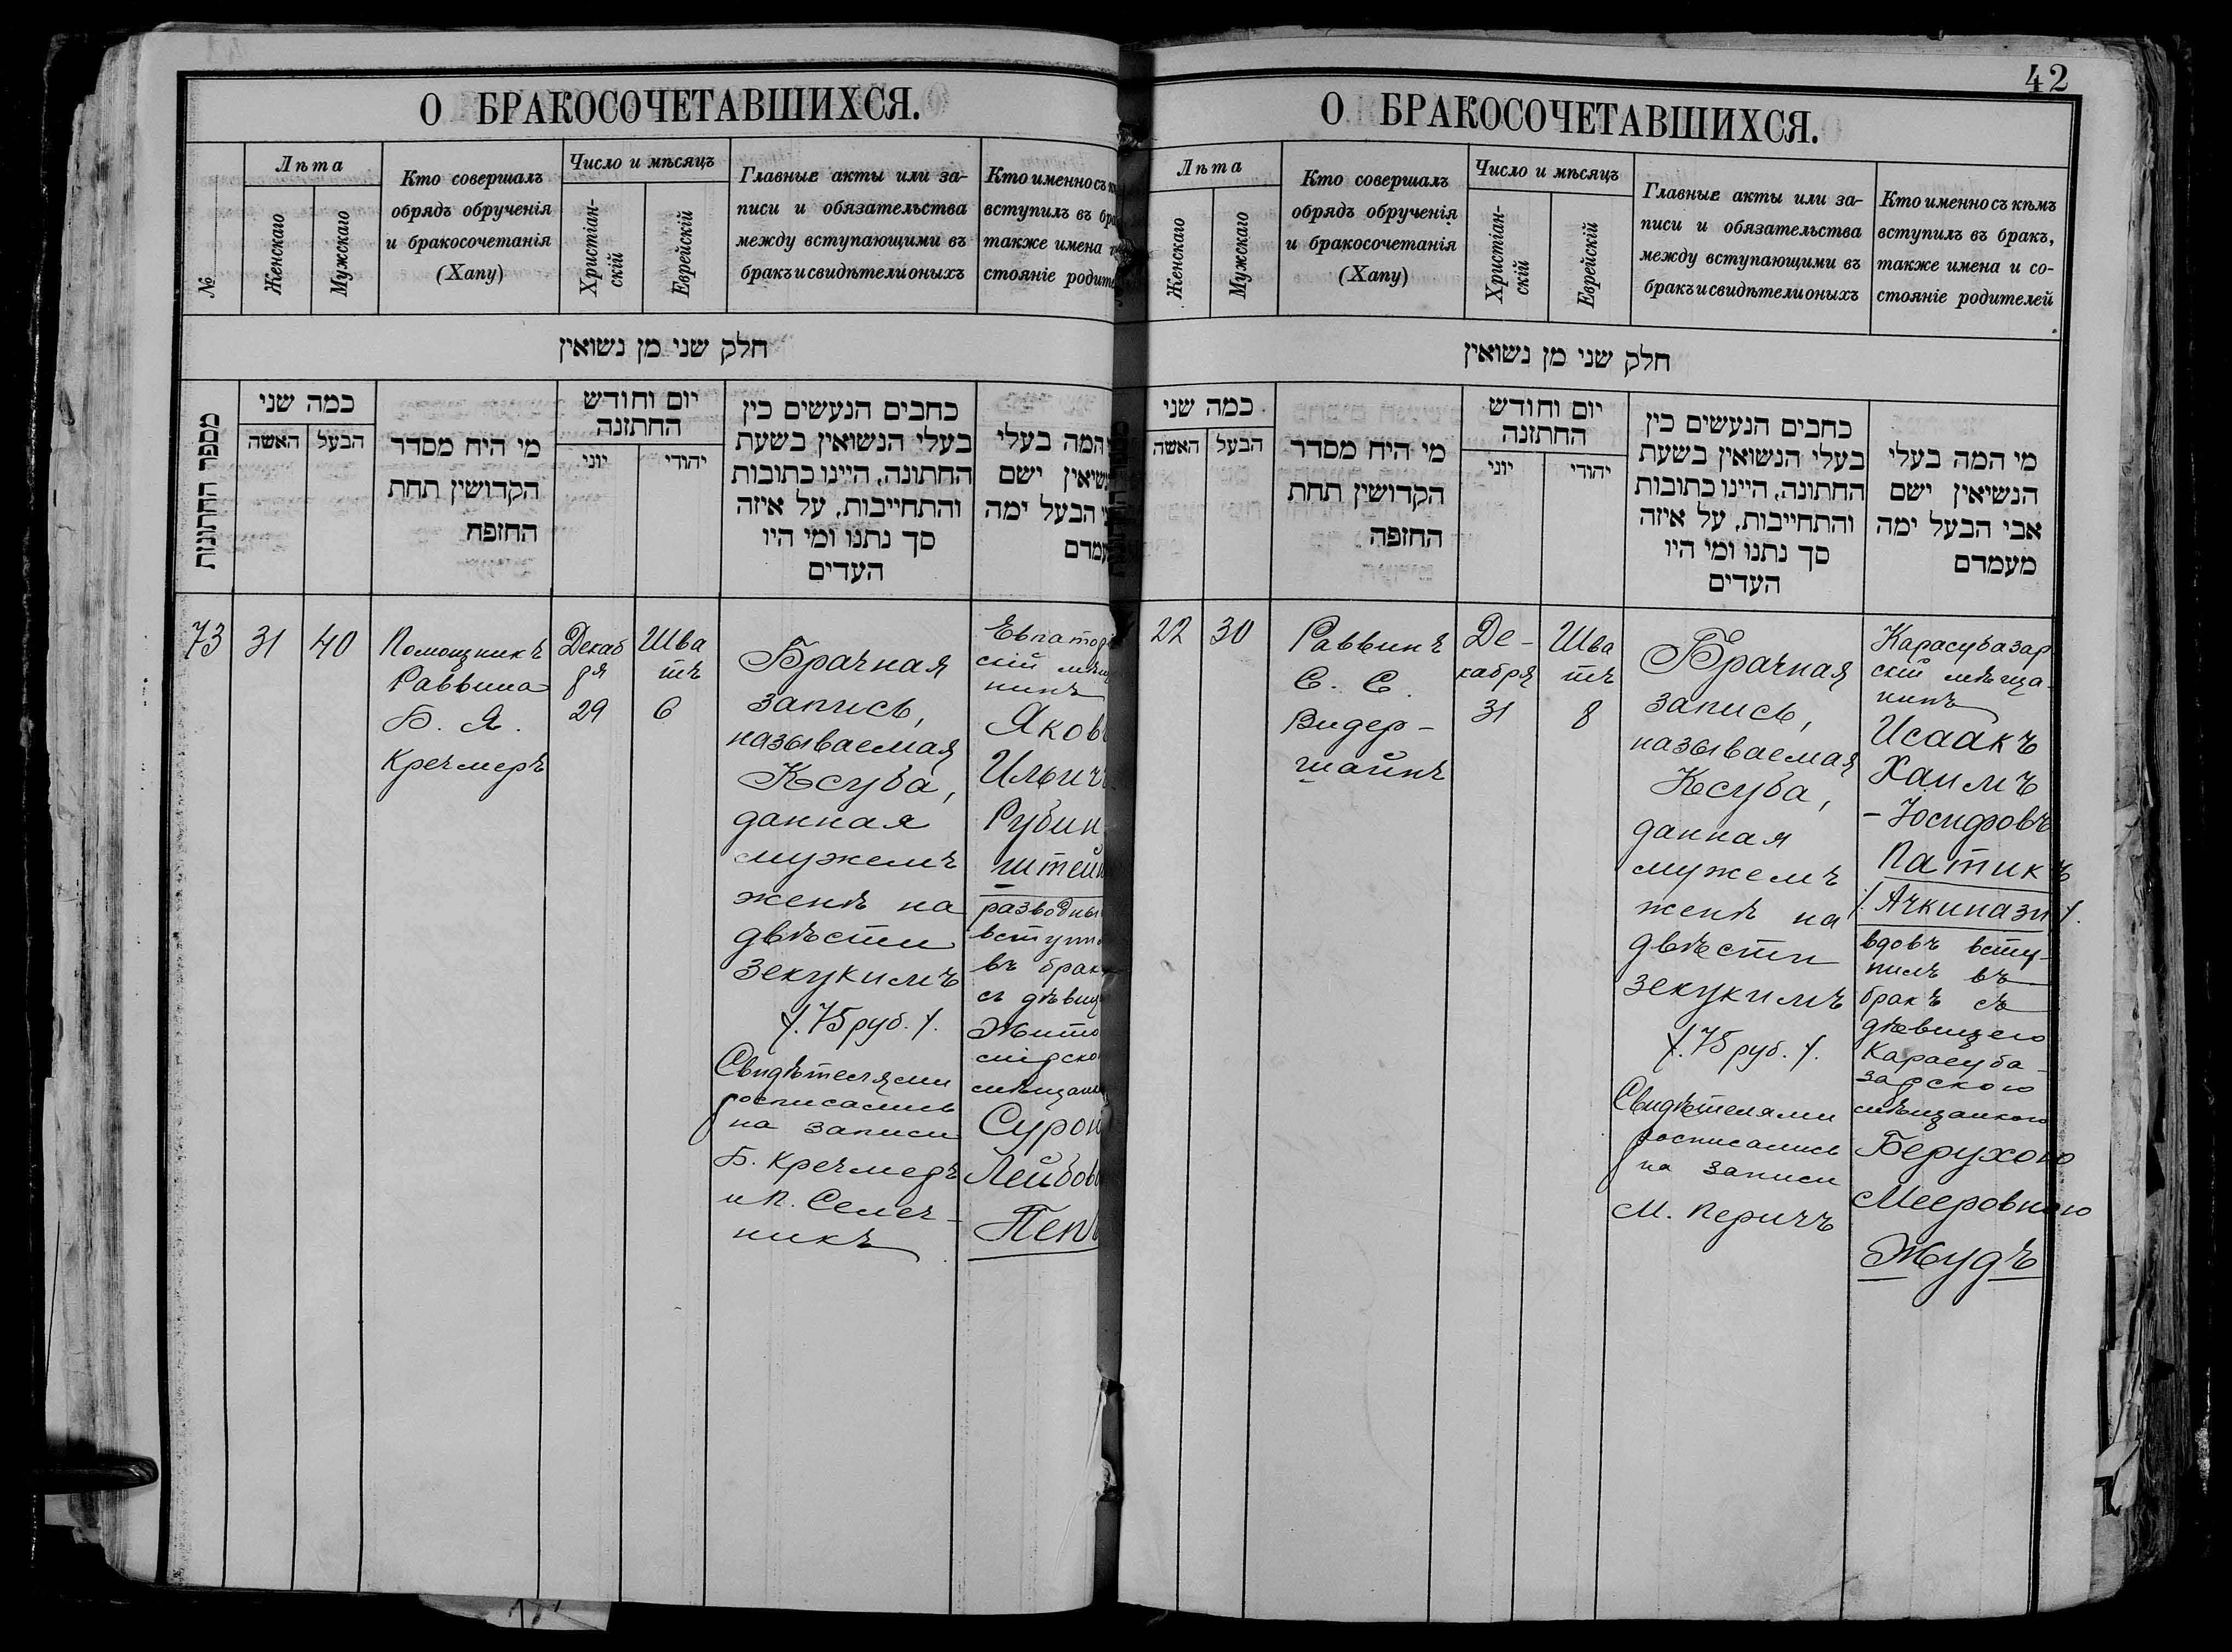 О БРАКОСОЧЕТАВШИХСЯ.
№
Лѣта
Женскаго
Мужскаго
Кто совершалъ
обрядъ обрученія
и бракосочетанія
(Хапу)
Число и мѣсяцъ
Христіан-
скій
Еврейскій
Главные акты или за-
писи и обязательства
между вступающими въ
бракъ и свидѣтели оныхъ
Кто именно съ
вступилъ въ
также имена
стояніе
חלק שני מן נשואין
מספר החתונות
כמה שני
האשה
הבעל
מי היח מסדר
הקדושין תחת
החזפח
יום וחודש
החתזנה
יוני
יהודי
כחבים הנעשים כין
בעלי הנשואין בשעת
החתונה, היינו כתובות
והתחייבות, על איזה
סך נתנו ומי היו
העדים
המה בעלי
ישם
הבעל ימה
73
31
40
Помощникъ
Раввина
Б. Я.
Кречмеръ
Декаб
ря
29
Шва
тъ
6
Брачная
запись,
называемая
Ксуба,
данная
мужемъ
женѣ на
двѣсти
зекукимъ
/.75 руб./.
Свидѣтелями
росписались
на записи
Б. Кречмеръ
и П. Селеч-
никъ
Евпаторій
скій мѣщ
нинъ
Яковъ
Ильичъ
Рубин
штейн
разводный
вступи
въ брак
съ дѣвиц
Жито
мірско
мѣщанк
Сурой
Лейбов
Пеп
42
О БРАКОСОЧЕТАВШИХСЯ.
Лѣта
Женскаго
Мужскаго
Кто совершалъ
обрядъ обрученія
и бракосочетанія
(Хапу)
Число и мѣсяцъ
Христіан-
скій
Еврейскій
Главные акты или за-
писи и обязательства
между вступающими въ
бракъ и свидѣтели оныхъ
Кто именно съ кѣмъ
вступилъ въ бракъ,
также имена и со-
стояніе родителей
חלק שני מן נשואין
כמה שני
האשה
הבעל
מי היח מסדר
הקדושין תחת
החזפה
יום וחודש
החתזנה
יוני
יהודי
כחבים הנעשים כין
בעלי הנשואין בשעת
החתונה, היינו כתובות
והתחייבות, על איזה
סך נתנו ומי היו
העדים
מי המה בעלי
הנשיאין ישם
אבי הבעל ימה
מעמדם
22
30
Раввинъ
С. С.
Видер-
шайнъ
Де-
кабря
31
Шва
тъ
8
Брачная
запись,
называемая
Ксуба,
данная
мужемъ
женѣ на
двѣсти
зекукимъ
/.75 руб./.
Свидѣтелями
росписались
на записи
М. Перичъ
Карасубазар
скій мѣща-
нинъ
Исаакъ
Хаимъ
-Юсифовъ
Патикъ
/.Ачкинази/.
вдовъ всту-
пилъ въ
бракъ съ
дѣвицею
Карасуба-
зарскою
мѣщанкою
Берухою
Мееровною
Жудъ